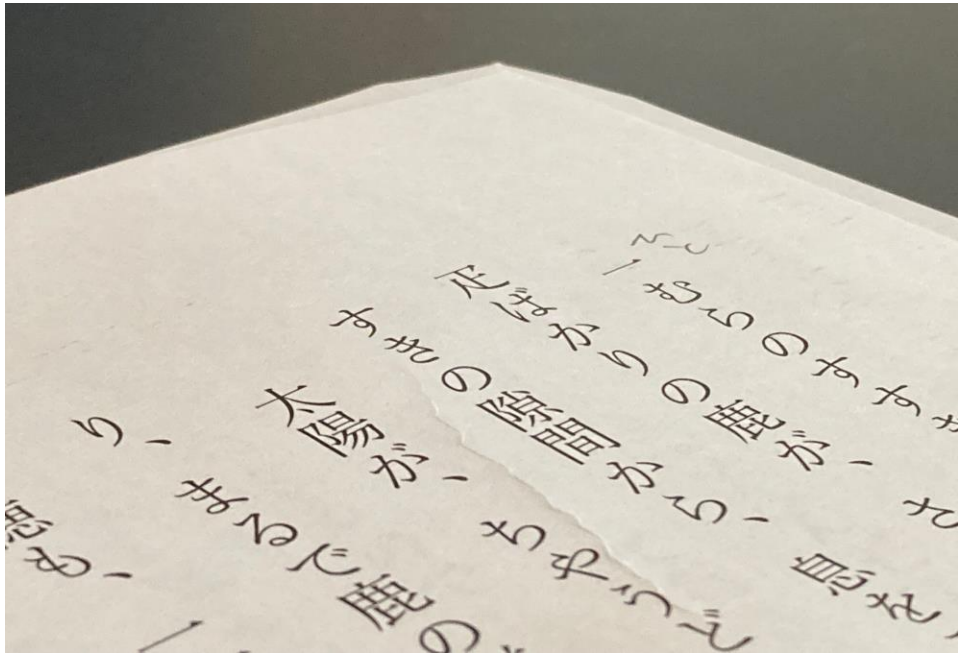 ひと
一むらのすすき
疋ばかりの鹿が、さ
すきの隙間から、息を
太陽が、ちやうど
り、まるで鹿の
も、一